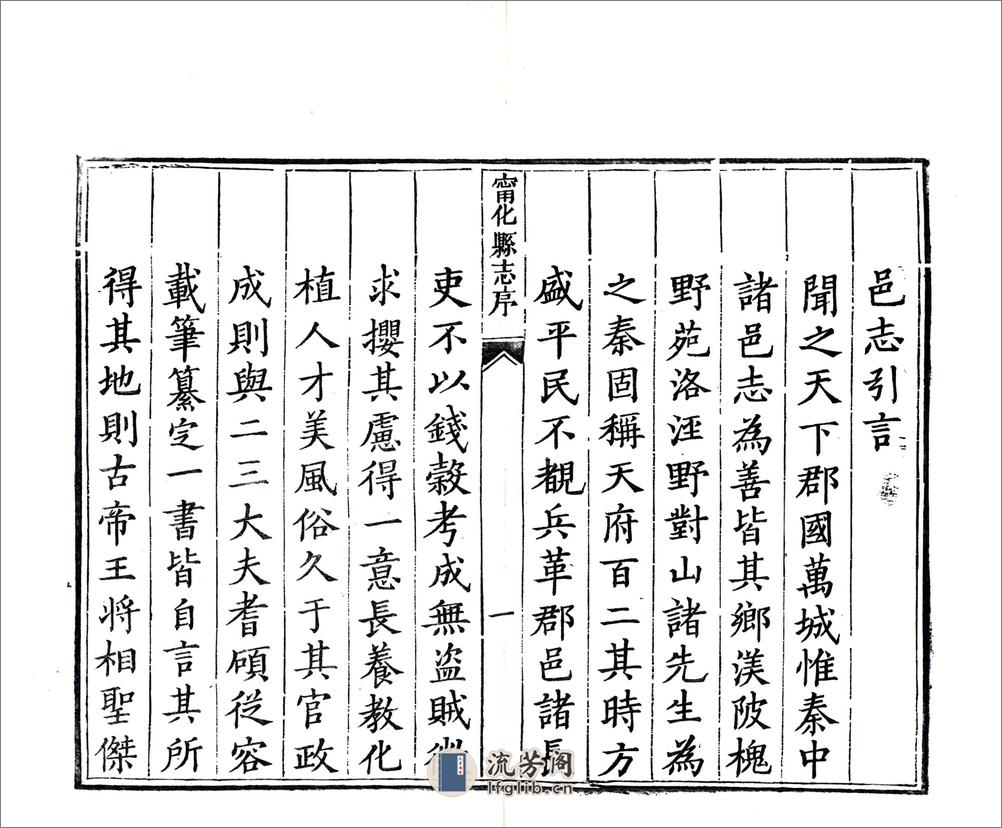 邑志引言
聞之天下郡國萬城惟秦中
諸邑志為善皆其鄉渼陂槐
野苑洛涇野對山諸先生為
之秦固稱天府百二其時方
盛平民不覩兵革郡邑諸長
甯化縣志序
一
吏不以錢穀考成無盜賊
求攖其慮得一意長養教化
植人才美風俗久于其官政
成則與二三大夫耆碩從容
載筆纂定一書皆自言其所
得其地則古帝王將相聖傑
流芳阁
lfglib.cn